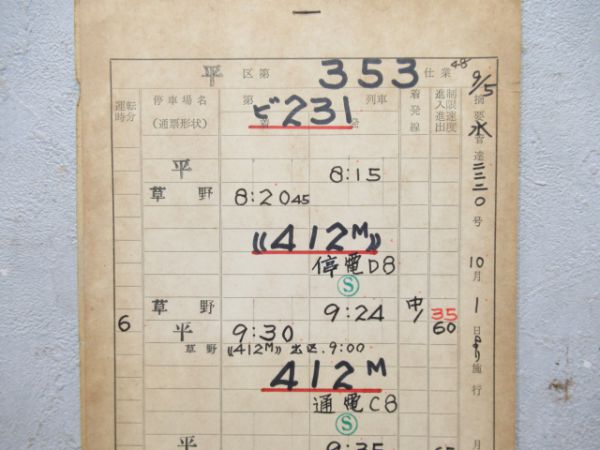 平 区第 353 仕業 48
運転時分 停車場名 (通票形状) 第 ビ231 列車 着 発 着発線 制限速度 進入 進出 摘要
9/5 水 達三三二〇号 10月1日より施行
平 8:15
草野 8:20 45
《412M》
停電D8
Ⓢ
6 草野 9:24 中/ 35
平 9:30 60
草野 《412M》 出区. 9:00
412M
通電C8
Ⓢ
平 9:35 月